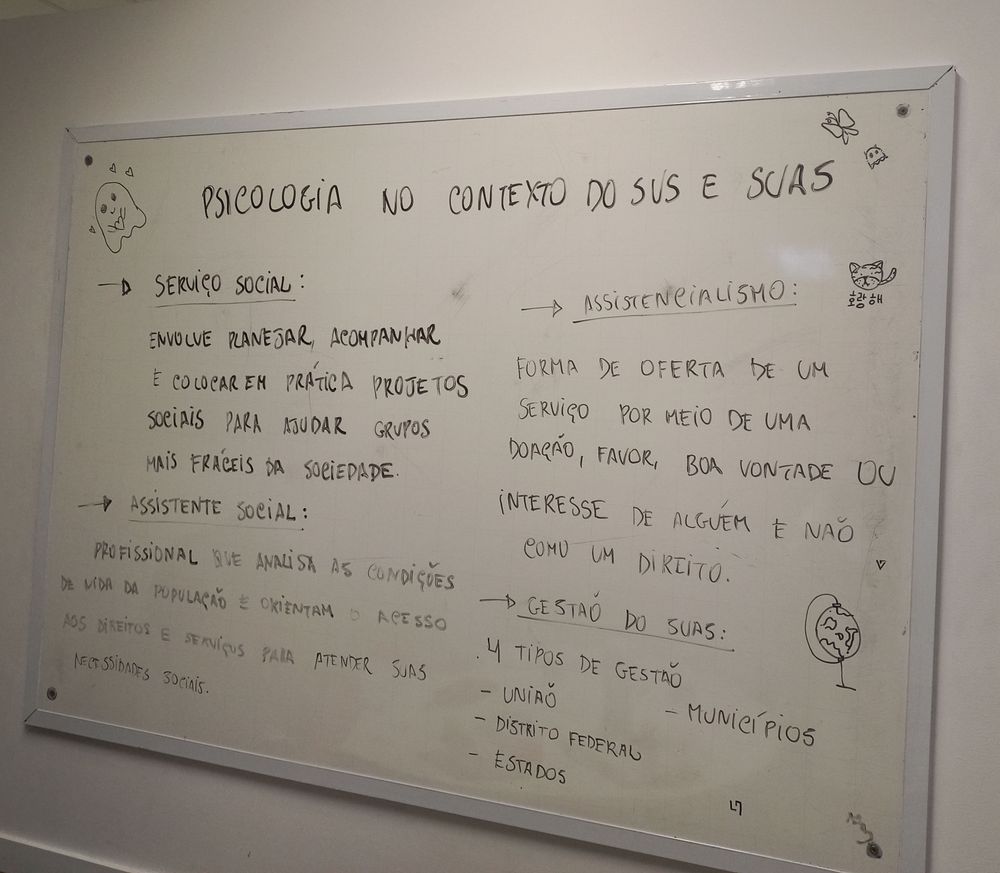 PSICOLOGIA NO CONTEXTO DO SUS E SUAS
→ SERVIÇO SOCIAL:
ENVOLVE PLANEJAR, ACOMPANHAR
E COLOCAR EM PRÁTICA PROJETOS
SOCIAIS PARA AJUDAR GRUPOS
MAIS FRÁGEIS DA SOCIEDADE.
→ ASSISTENTE SOCIAL:
PROFISSIONAL QUE ANALISA AS CONDIÇÕES
DE VIDA DA POPULAÇÃO E ORIENTAM O ACESSO
AOS DIREITOS E SERVIÇOS PARA ATENDER SUAS
NECESSIDADES SOCIAIS.
→ ASSISTENCIALISMO:
FORMA DE OFERTA DE UM
SERVIÇO POR MEIO DE UMA
DOAÇÃO, FAVOR, BOA VONTADE OU
INTERESSE DE ALGUÉM E NÃO
COMO UM DIREITO.
→ GESTAÕ DO SUAS:
. 4 TIPOS DE GESTAÕ
- UNIAÕ
- DISTRITO FEDERAL
- ESTADOS
- MUNICÍPIOS
호랑해